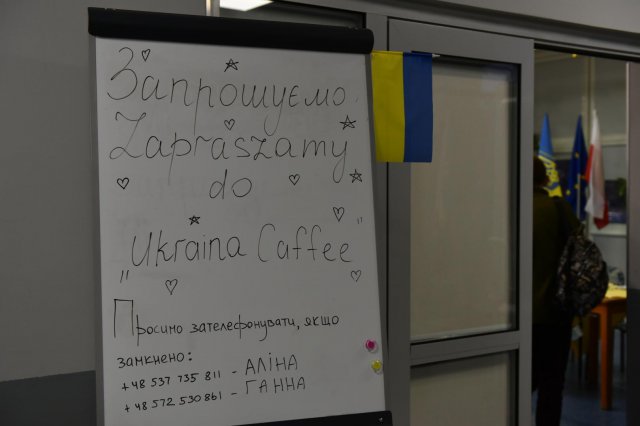 Запрошуємо
Zapraszamy
do
„Ukraina Caffee"
Просимо зателефонувати, якщо
замкнено:
+48 537 735 811 - АЛІНА
+48 572 530 861 - ГАННА